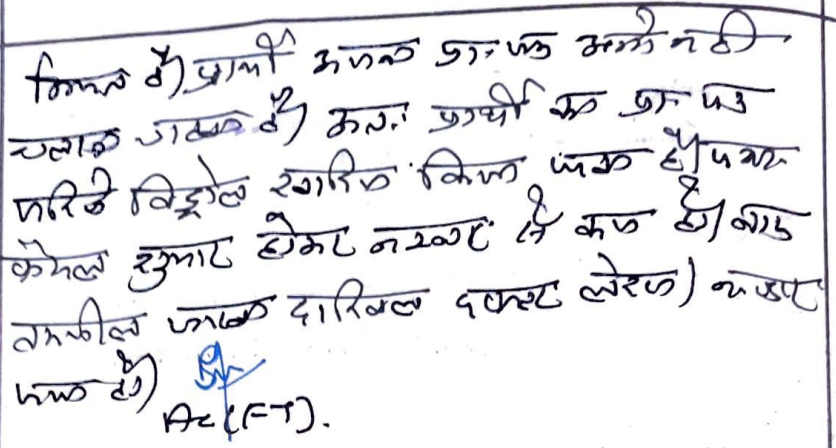 किया है) प्रार्थी अपना प्रा. पत्र आगे नहीं
चलाना चाहता है) अतः प्रार्थी का प्रा. पत्र
जरिये विड्रोल खारिज किया जाता है। पत्रा.
फैसल शुमार होकर नम्बर से कम हो। बाद
तकमील फाइल दाखिल दफ्तर लेवे)
जावे)
Ac (FT).